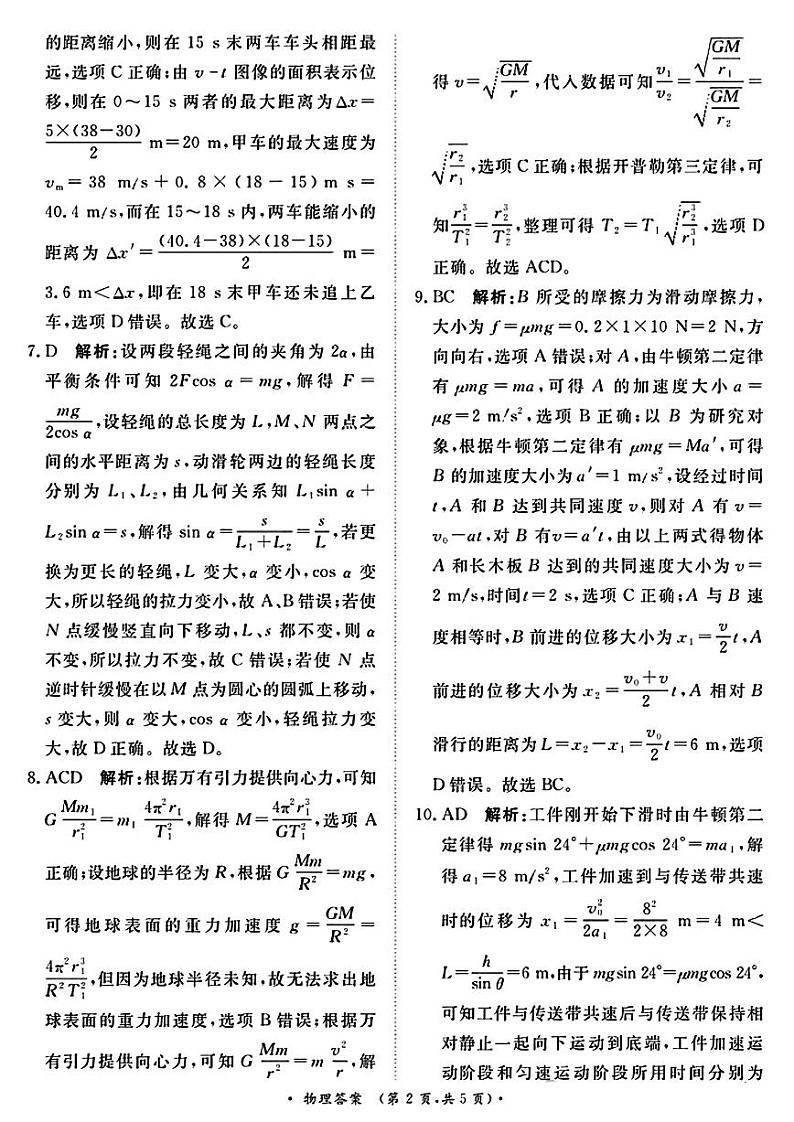 的距离缩小,则在 15 s 末两车车头相距最
远,选项 C 正确;由 v-t 图像的面积表示位
移,则在 0～15 s 两者的最大距离为Δx=
5×(38-30)/2 m=20 m,甲车的最大速度为
v_m = 38 m/s + 0.8×(18-15) m s =
40.4 m/s,而在 15～18 s 内,两车能缩小的
距离为 Δx′= (40.4-38)×(18-15)/2 m=
3.6 m<Δx,即在 18 s 末甲车还未追上乙
车,选项 D 错误。故选 C。
7. D 解析:设两段轻绳之间的夹角为 2α,由
平衡条件可知 2Fcos α = mg,解得 F =
mg/(2cos α),设轻绳的总长度为 L,M、N 两点之
间的水平距离为 s,动滑轮两边的轻绳长度
分别为 L₁、L₂,由几何关系知 L₁sin α +
L₂sin α=s,解得 sin α= s/(L₁+L₂) = s/L,若更
换为更长的轻绳,L 变大,α 变小,cos α 变
大,所以轻绳的拉力变小,故 A、B错误;若使
N 点缓慢竖直向下移动,L、s 都不变,则 α
不变,所以拉力不变,故 C 错误;若使 N 点
逆时针缓慢在以M 点为圆心的圆弧上移动,
s 变大,则 α 变大,cos α 变小,轻绳拉力变
大,故 D 正确。故选 D。
8. ACD 解析:根据万有引力提供向心力,可知
G Mm₁/r₁² = m₁ 4π²r₁/T₁²,解得 M= 4π²r₁³/GT₁²,选项 A
正确;设地球的半径为 R,根据 G Mm/R² =mg,
可得地球表面的重力加速度 g = GM/R² =
4π²r₁³/R²T₁²,但因为地球半径未知,故无法求出地
球表面的重力加速度,选项 B 错误;根据万
有引力提供向心力,可知 G Mm/r² = m v²/r,解
得 v=√(GM/r),代入数据可知 v₁/v₂ = √(GM/r₁)/√(GM/r₂) =
√(r₂/r₁),选项 C 正确;根据开普勒第三定律,可
知 r₁³/T₁² = r₂³/T₂²,整理可得 T₂=T₁√(r₂³/r₁³),选项 D
正确。故选 ACD。
9. BC 解析:B 所受的摩擦力为滑动摩擦力,
大小为 f=μmg=0.2×1×10 N=2 N,方
向向右,选项 A 错误;对 A,由牛顿第二定律
有 μmg = ma,可得 A 的加速度大小 a =
μg=2 m/s²,选项 B 正确;以 B 为研究对
象,根据牛顿第二定律有 μmg=Ma′,可得
B 的加速度大小为 a′=1 m/s²,设经过时间
t,A 和 B 达到共同速度 v,则对 A 有 v=
v₀-at,对 B 有v=a′t,由以上两式得物体
A 和长木板 B 达到的共同速度大小为 v=
2 m/s,时间t=2 s,选项 C 正确;A 与 B 速
度相等时,B 前进的位移大小为 x₁= v/2 t,A
前进的位移大小为 x₂= (v₀+v)/2 t,A 相对 B
滑行的距离为 L=x₂-x₁= v₀/2 t=6 m,选项
D 错误。故选 BC。
10. AD 解析:工件刚开始下滑时由牛顿第二
定律得 mgsin 24°+μmgcos 24°=ma₁,解
得 a₁=8 m/s²,工件加速到与传送带共速
时的位移为 x₁= v₀²/2a₁ = 8²/(2×8) m=4 m<
L= h/sin θ =6 m,由于 mgsin 24°=μmgcos 24°,
可知工件与传送带共速后与传送带保持相
对静止一起向下运动到底端,工件加速运
动阶段和匀速运动阶段所用时间分别为
·物理答案 (第 2 页,共 5 页)·